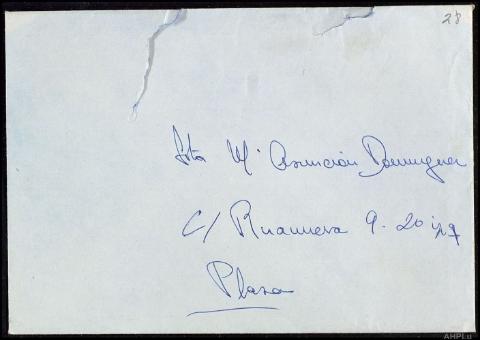 28
Srta Mª Asunción Dominguez
C/ Ruanueva 9. 2º izq
Plaza
AHPLu